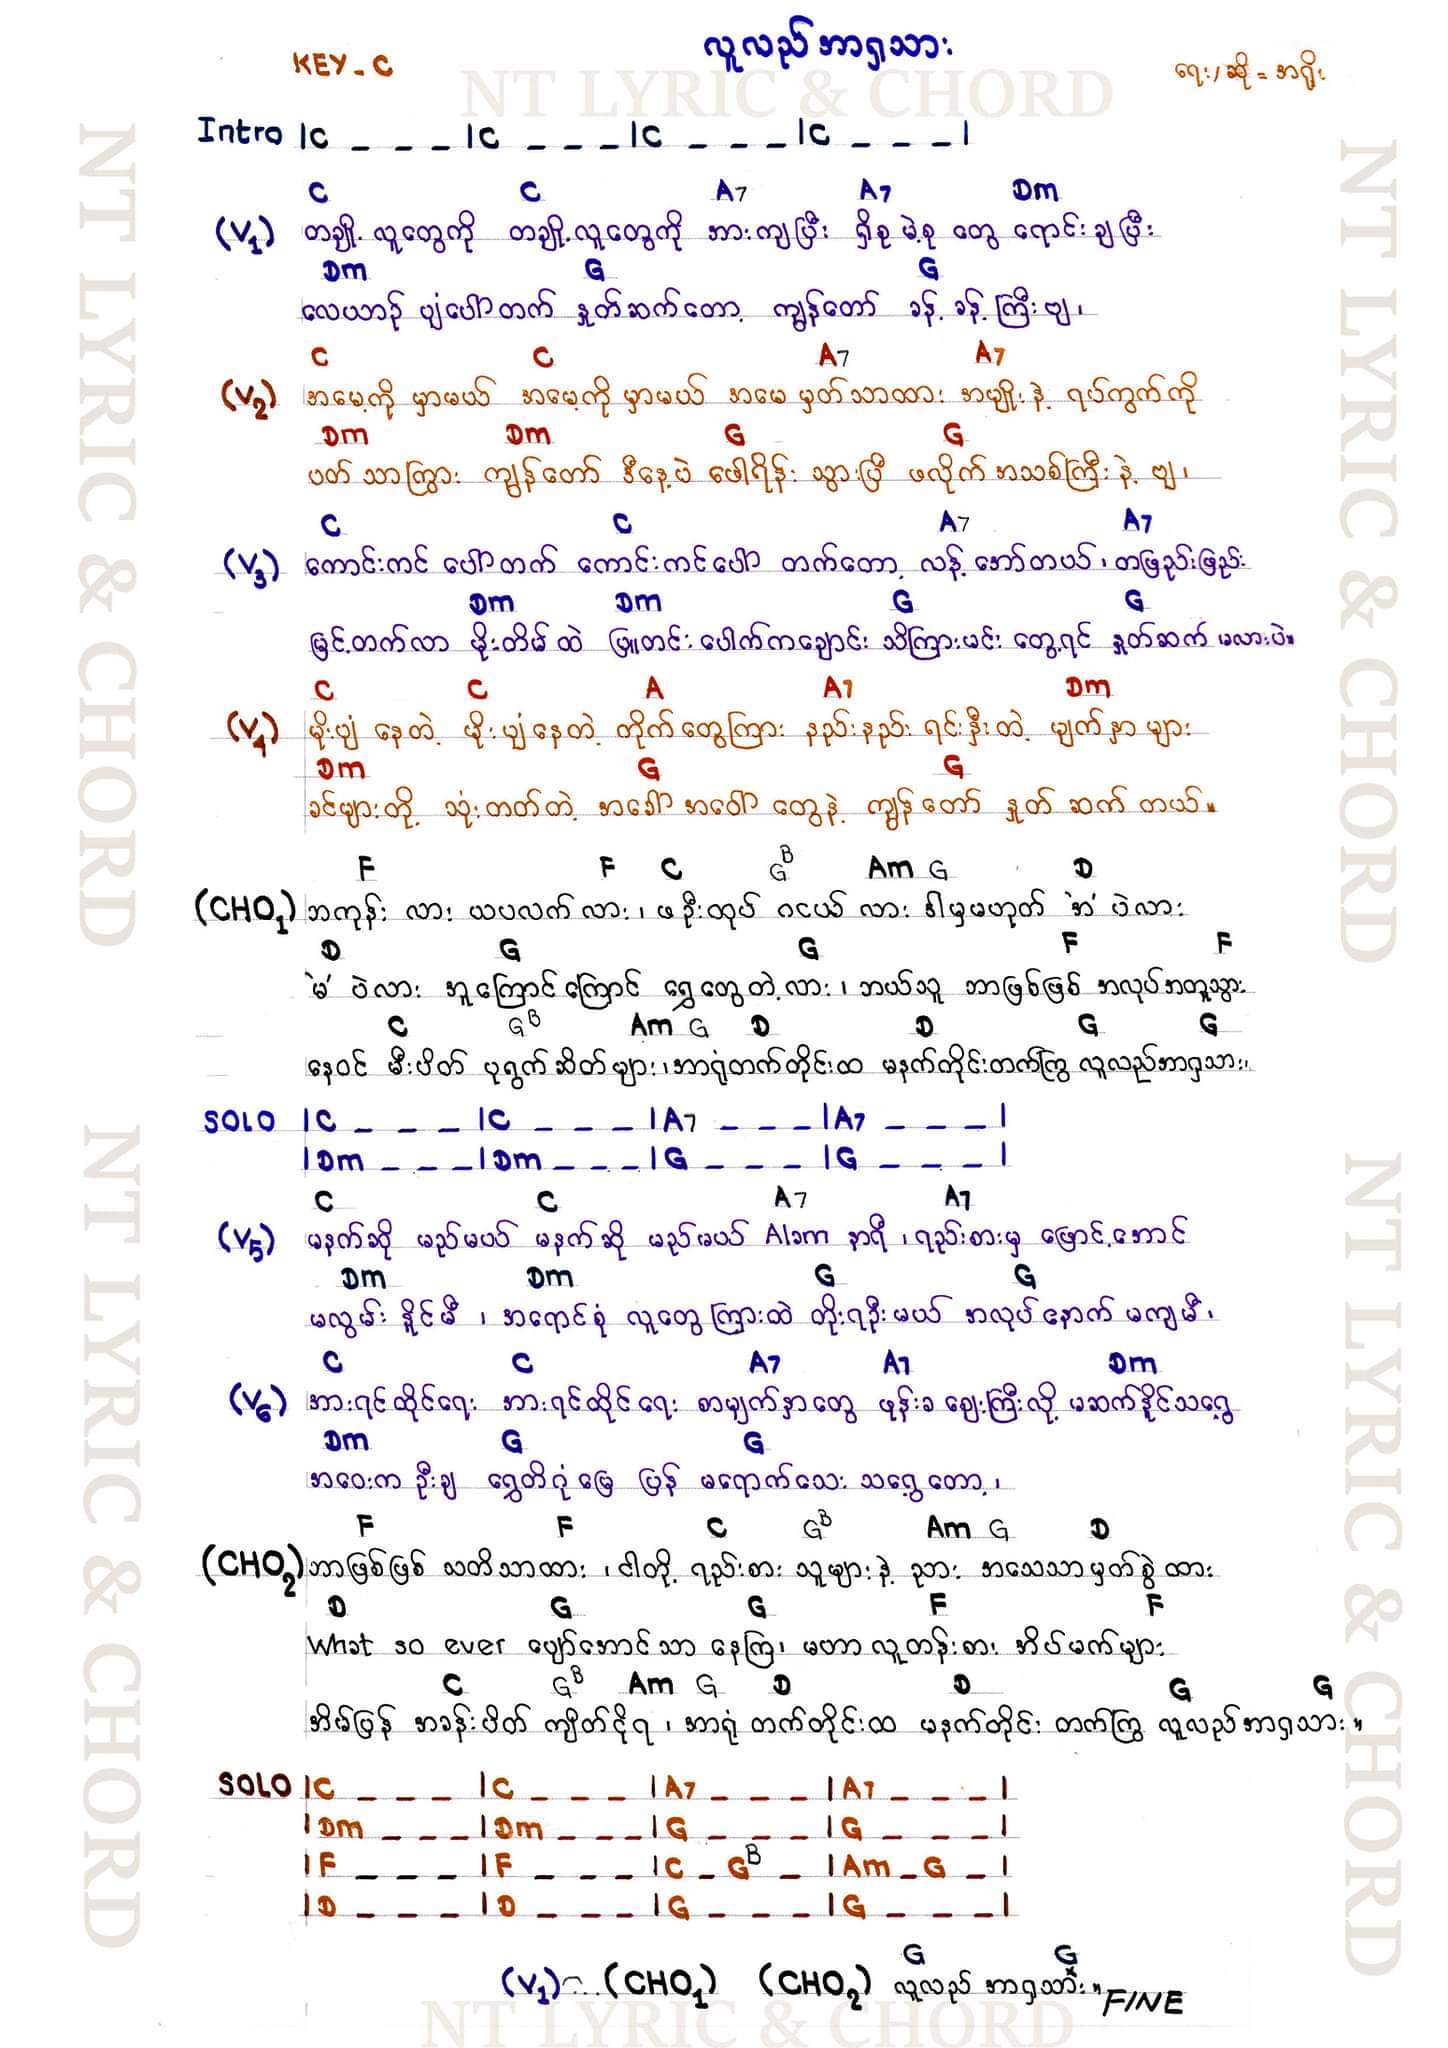 လူလည်ဘာရှသား
KEY - C
ရေး/ဆို = အရိုး
NT LYRIC & CHORD
Intro |C _ _ _ |C _ _ _ |C _ _ _ |C _ _ _ |
C C A7 A7 Dm
(V1) တချို့လူတွေကို တချို့လူတွေကို အားကျပြီး ရှိစု မဲ့စု တွေ ရောင်းချပြီး
Dm G G
လေယာဉ် ပျံပေါ်တက် နှုတ်ဆက်တော့ ကျွန်တော် ခန့် ခန့် ကြီးဗျ၊
C C A7 A7
(V2) အမေ့ကို မှာမယ် အမေ့ကို မှာမယ် အမေ မှတ်သာထား အမျိုးနဲ့ ရပ်ကွက်ကို
Dm Dm G G
ပတ်သာကြွား ကျွန်တော် ဒီနေ့ပဲ ဖေါရိန်း သွားပြီ ဖလိုက်အသစ်ကြီးနဲ့ ဗျ၊
C C A7 A7
(V3) ကောင်းကင် ပေါ်တက် ကောင်းကင်ပေါ် တက်တော့ လန့်အော်တယ်၊ တဖြည်းဖြည်း
Dm Dm G G
မြင့်တက်လာ မိုးတိမ်ထဲ ဖြူတင်းပေါက်ကချောင်း သိကြားမင်း တွေ့ရင် နှုတ်ဆက်မလားပဲ။
C C A A7 Dm
(V4) မိုးပျံ နေတဲ့ မိုးပျံနေတဲ့ တိုက်တွေကြား နည်းနည်း ရင်းနှီးတဲ့ မျက်နှာများ
Dm G G
ခင်ဗျားတို့ သုံးတတ်တဲ့ အခေါ်အဝေါ်တွေနဲ့ ကျွန်တော် နှုတ်ဆက်တယ်။
F F C G B Am G D
(CHO1) ဘကုန်း လား ယပလက်လား၊ ဖဦးထုပ် ဂငယ် လား ဒါမှမဟုတ် 'အဲ' ပဲလား
D G G F F
'မဲ' ပဲလား အူကြောင်ကြောင် ရွှေတွေတဲ့လား၊ ဘယ်သူ ဘာဖြစ်ဖြစ် အလုပ်အတူသွား
C G B Am G D D G G
နေဝင် မီးပိတ် ပုရွက်ဆိတ်များ၊ အာရုံတက်တိုင်းထ မနက်တိုင်းတက်ကြွ လူလည်ဘာရှသား၊
SOLO |C _ _ _ |C _ _ _ |A7 _ _ _ |A7 _ _ _ |
|Dm _ _ _ |Dm _ _ _ |G _ _ _ |G _ _ _ |
C C A7 A7
(V5) မနက်ဆို မည်မယ် မနက်ဆို မည်မယ် Alam နာရီ၊ ရည်းစားမှ ဖြောင့်အောင်
Dm Dm G G
မလွမ်း နိူင်မီ၊ အရောင်စုံ လူတွေကြားထဲ တိုးရဦးမယ် အလုပ်နောက် မကျမီ၊
C C A7 A7 Dm
(V6) အားရင်ထိုင်ရေး အားရင်ထိုင်ရေး စာမျက်နှာတွေ ဖုန်းခ ဈေးကြီးလို့ မဆက်နိူင်သရွေ့
Dm G G
အဝေးက ဦးချ ရွှေတိဂုံမြေ ပြန် မရောက်သေး သရွေ့တော့၊
F F C G B Am G D
(CHO2) ဘာဖြစ်ဖြစ် သတိသာထား၊ ငါတို့ ရည်းစား သူများနဲ့ ညား အသေသာမှတ်စွဲ ထား
D G G F F
What so ever ပျော်အောင်သာ နေကြ၊ မဟာ လူတန်းစား အိပ်မက်များ
C G B Am G D D G G
အိမ်ပြန် အခန်းပိတ် ကျိတ်ငိုရ၊ အာရုံ တက်တိုင်းထ မနက်တိုင်း တက်ကြွ လူလည်ဘာရှသား။
SOLO |C _ _ _ |C _ _ _ |A7 _ _ _ |A7 _ _ _ |
|Dm _ _ _ |Dm _ _ _ |G _ _ _ |G _ _ _ |
|F _ _ _ |F _ _ _ |C _ G B _ |Am _ G _ |
|D _ _ _ |D _ _ _ |G _ _ _ |G _ _ _ |
G G
(V1) (CHO1) (CHO2) လူလည် ဘာရှသား။ FINE
NT LYRIC & CHORD
NT LYRIC & CHORD
NT LYRIC & CHORD
NT LYRIC & CHORD
NT LYRIC & CHORD